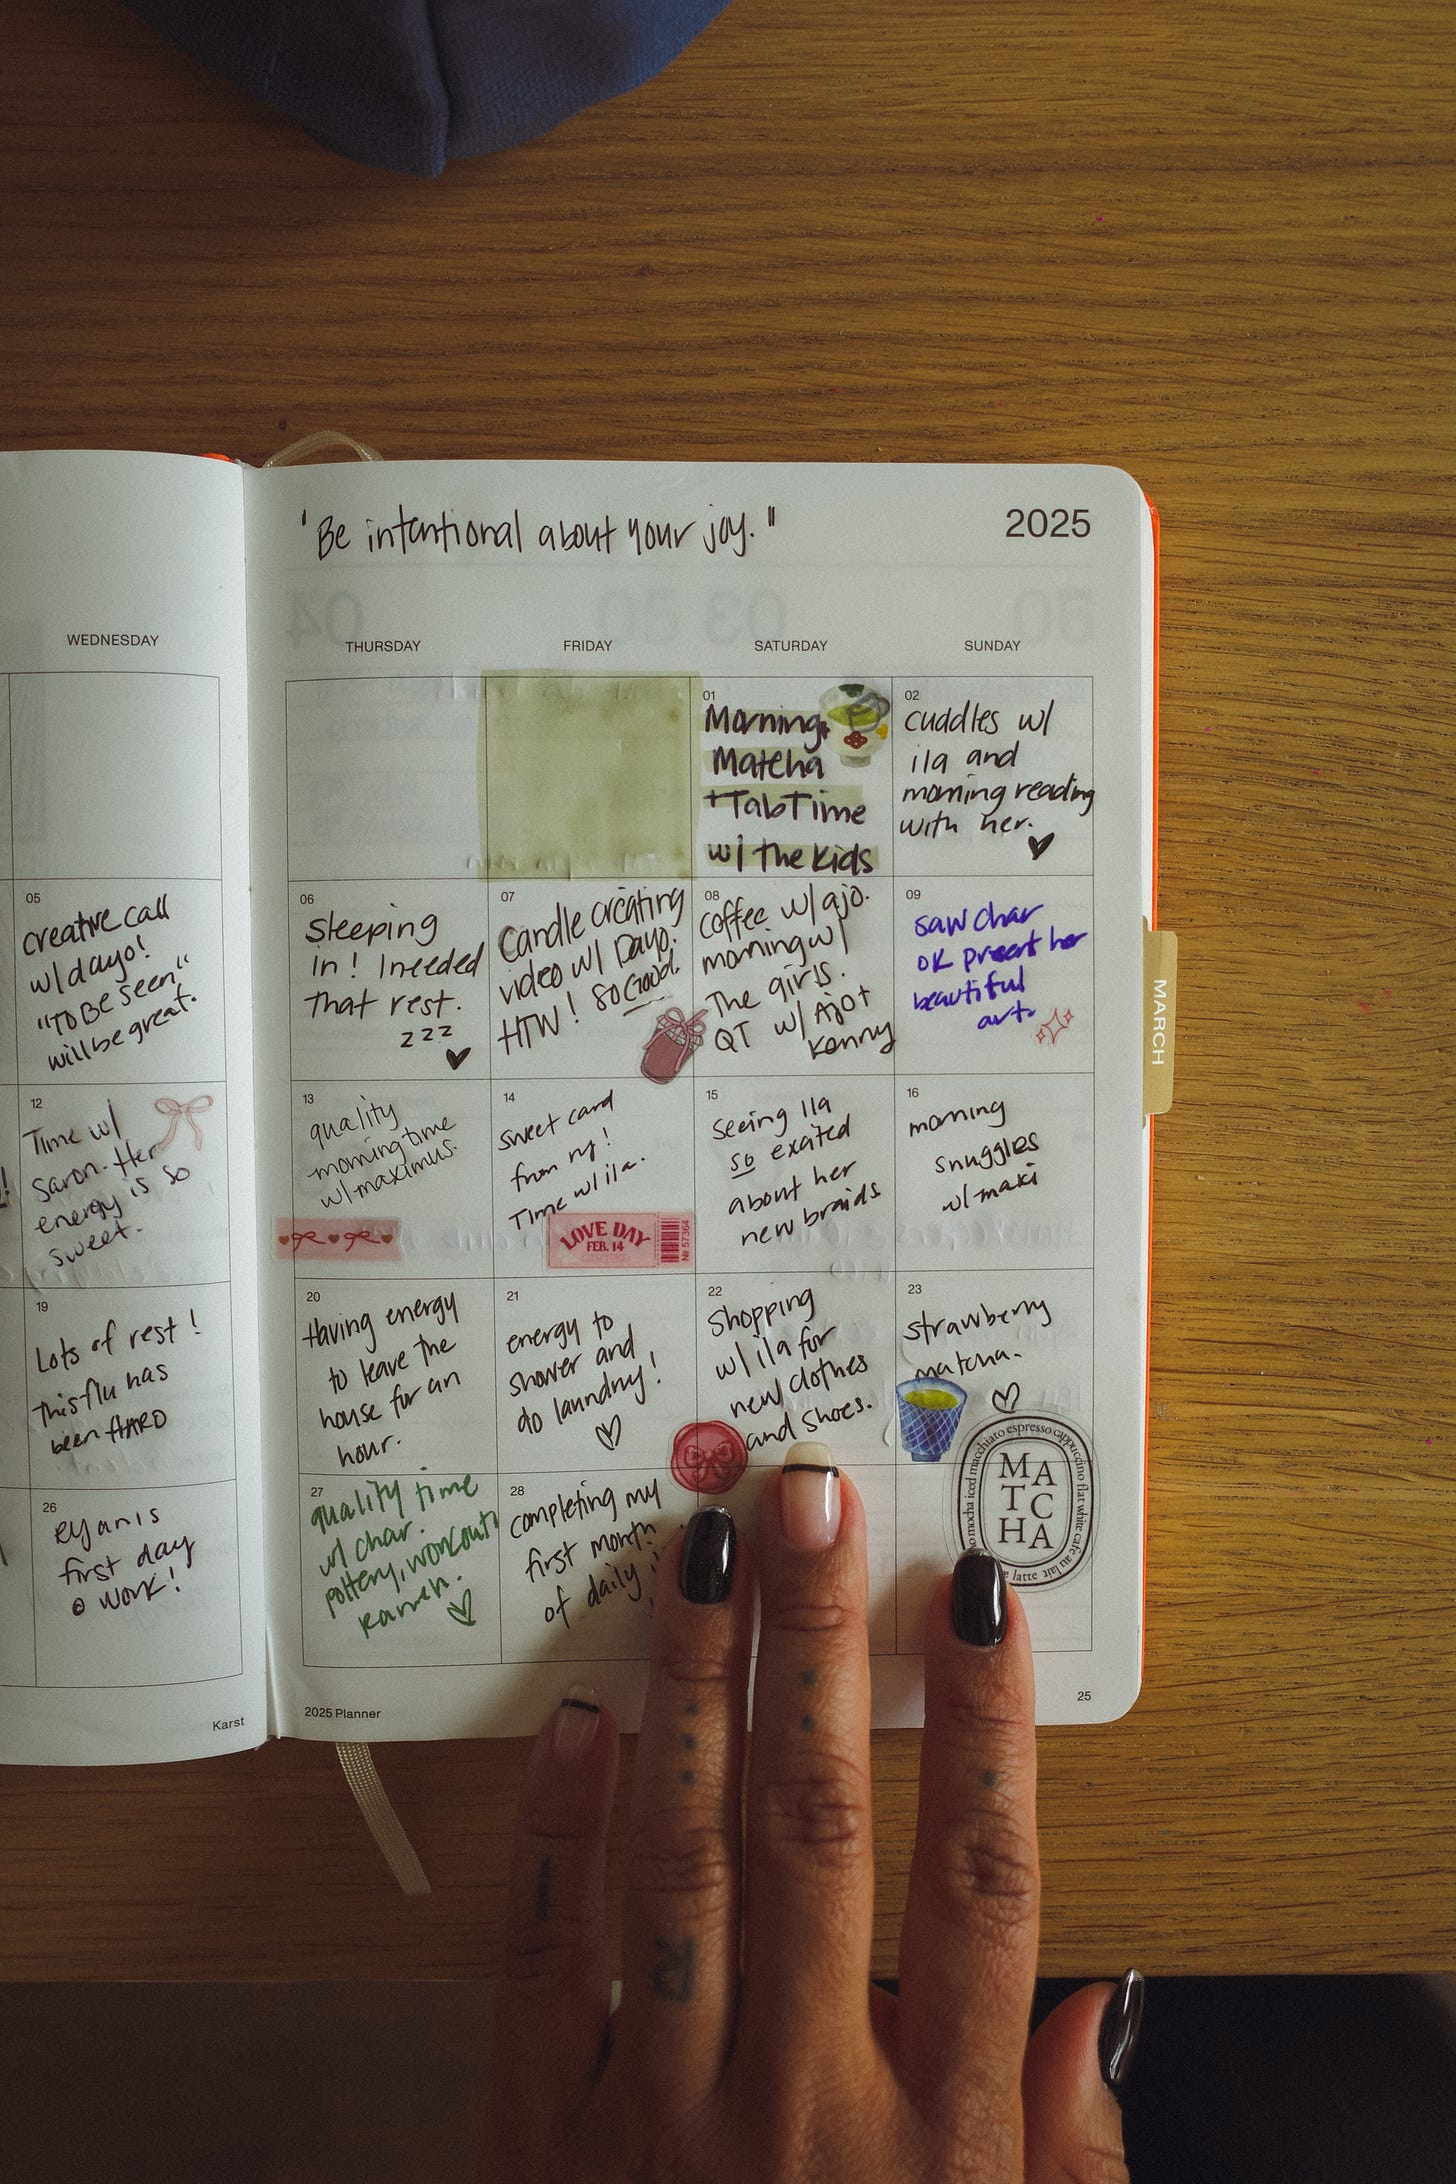 "Be intentional about your joy."
2025
WEDNESDAY
THURSDAY
FRIDAY
SATURDAY
SUNDAY
01
Morning
Matcha
+TabTime
w/ the kids
02
cuddles w/
ila and
morning reading
with her.
05
creative call
w/ dayo!
"TO BE seen"
will be great.
06
sleeping
in! I needed
that rest.
zzz
07
Candle creating
video w/ Dayo.
HTW! so Good.
08
coffee w/ ajo.
morning w/
The girls.
QT w/ Ajo +
Kenny
09
saw char
ok present her
beautiful
art.
MARCH
12
Time w/
Saron. Her
energy is so
sweet.
13
quality
morning time
w/ maximus.
14
sweet card
from ry!
Time w/ ila.
LOVE DAY
FEB. 14
№ 57364
15
seeing ila
so excited
about her
new braids
16
morning
snuggles
w/ maki
19
Lots of rest!
this flu has
been HARD
20
Having energy
to leave the
house for an
hour.
21
energy to
shower and
do laundry!
22
Shopping
w/ ila for
new clothes
and shoes.
23
strawberry
matcha.
mocha iced macchiato espresso cappuccino flat white cafe au lait latte
MA
TC
HA
26
Ryan's
first day
@ work!
27
quality time
w/ char.
pottery, workout,
ramen.
28
completing my
first month
of daily
Karst
2025 Planner
25